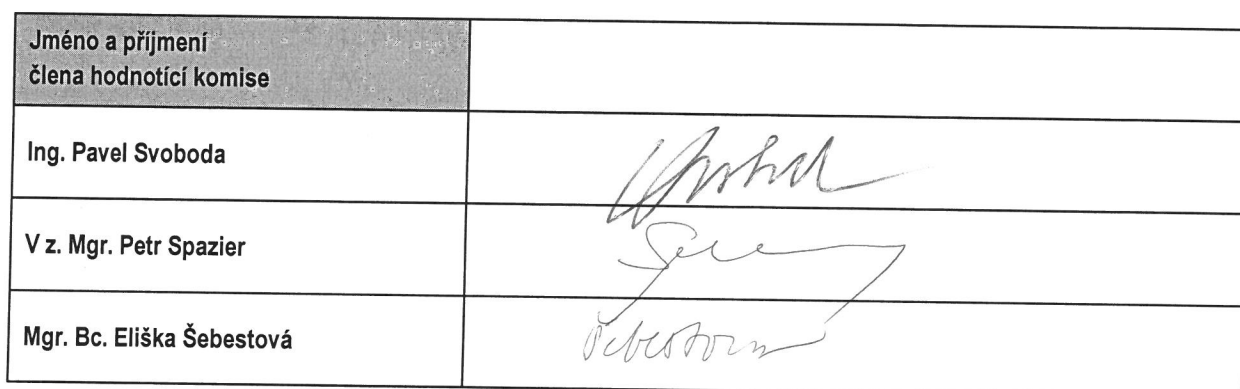 Jméno a příjmení
člena hodnotící komise
Ing. Pavel Svoboda
V z. Mgr. Petr Spazier
Mgr. Bc. Eliška Šebestová